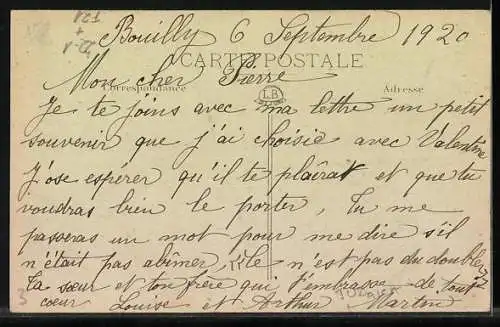 Bouilly 6 Septembre 1920
CARTE POSTALE
Mon cher Pierre
Correspondance
LB
Adresse
Je te joins avec ma lettre un petit
souvenir que j'ai choisie avec Valentine
J'ose espérer qu'il te plaîrat et que tu
voudras bien le porter, Tu me
passeras un mot pour me dire s'il
n'était pas abîmer, n'est pas du double
Ta sœur et ton frère qui t'embrasse de tout
coeur Louise et Arthur Martin